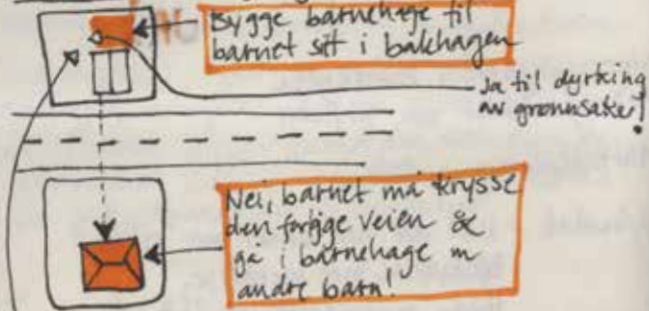 Bygge barnehage til
barnet sitt i bakhagen
Ja til dyrking
av grønnsaker!
Nei, barnet må krysse
den farlige veien &
gå i barnehage m
andre barn!